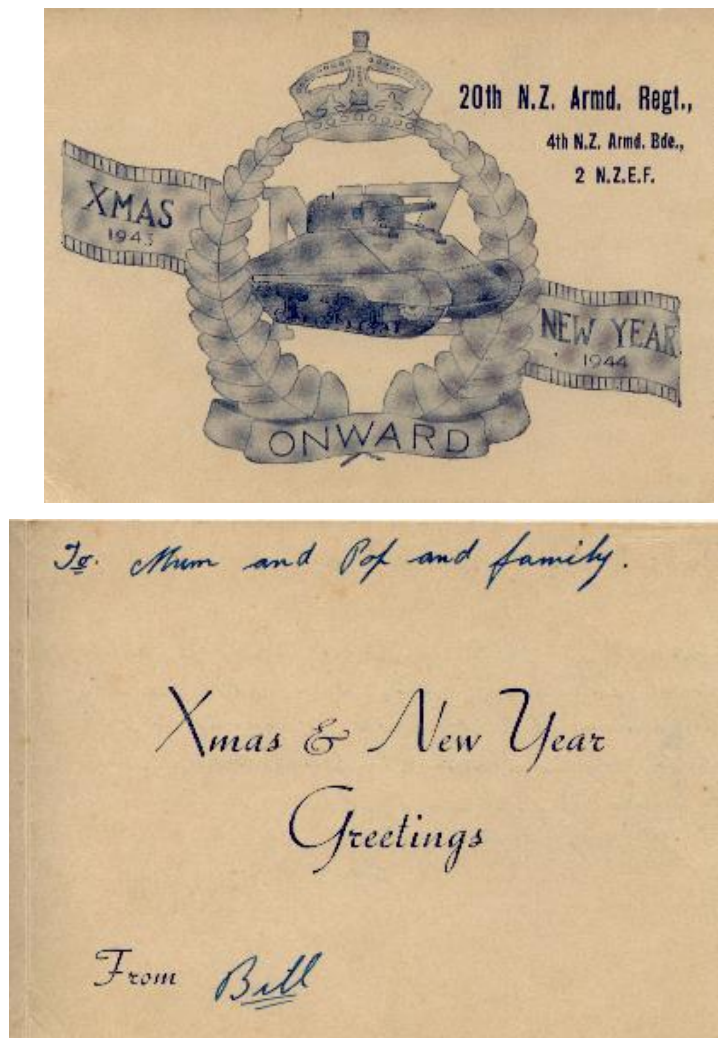 20th N.Z. Armd. Regt.,
4th N.Z. Armd. Bde.,
2 N.Z.E.F.
XMAS
1943
NZ
NEW YEAR
1944
ONWARD
To. Mum and Pop and family.
Xmas & New Year
Greetings
From Bill